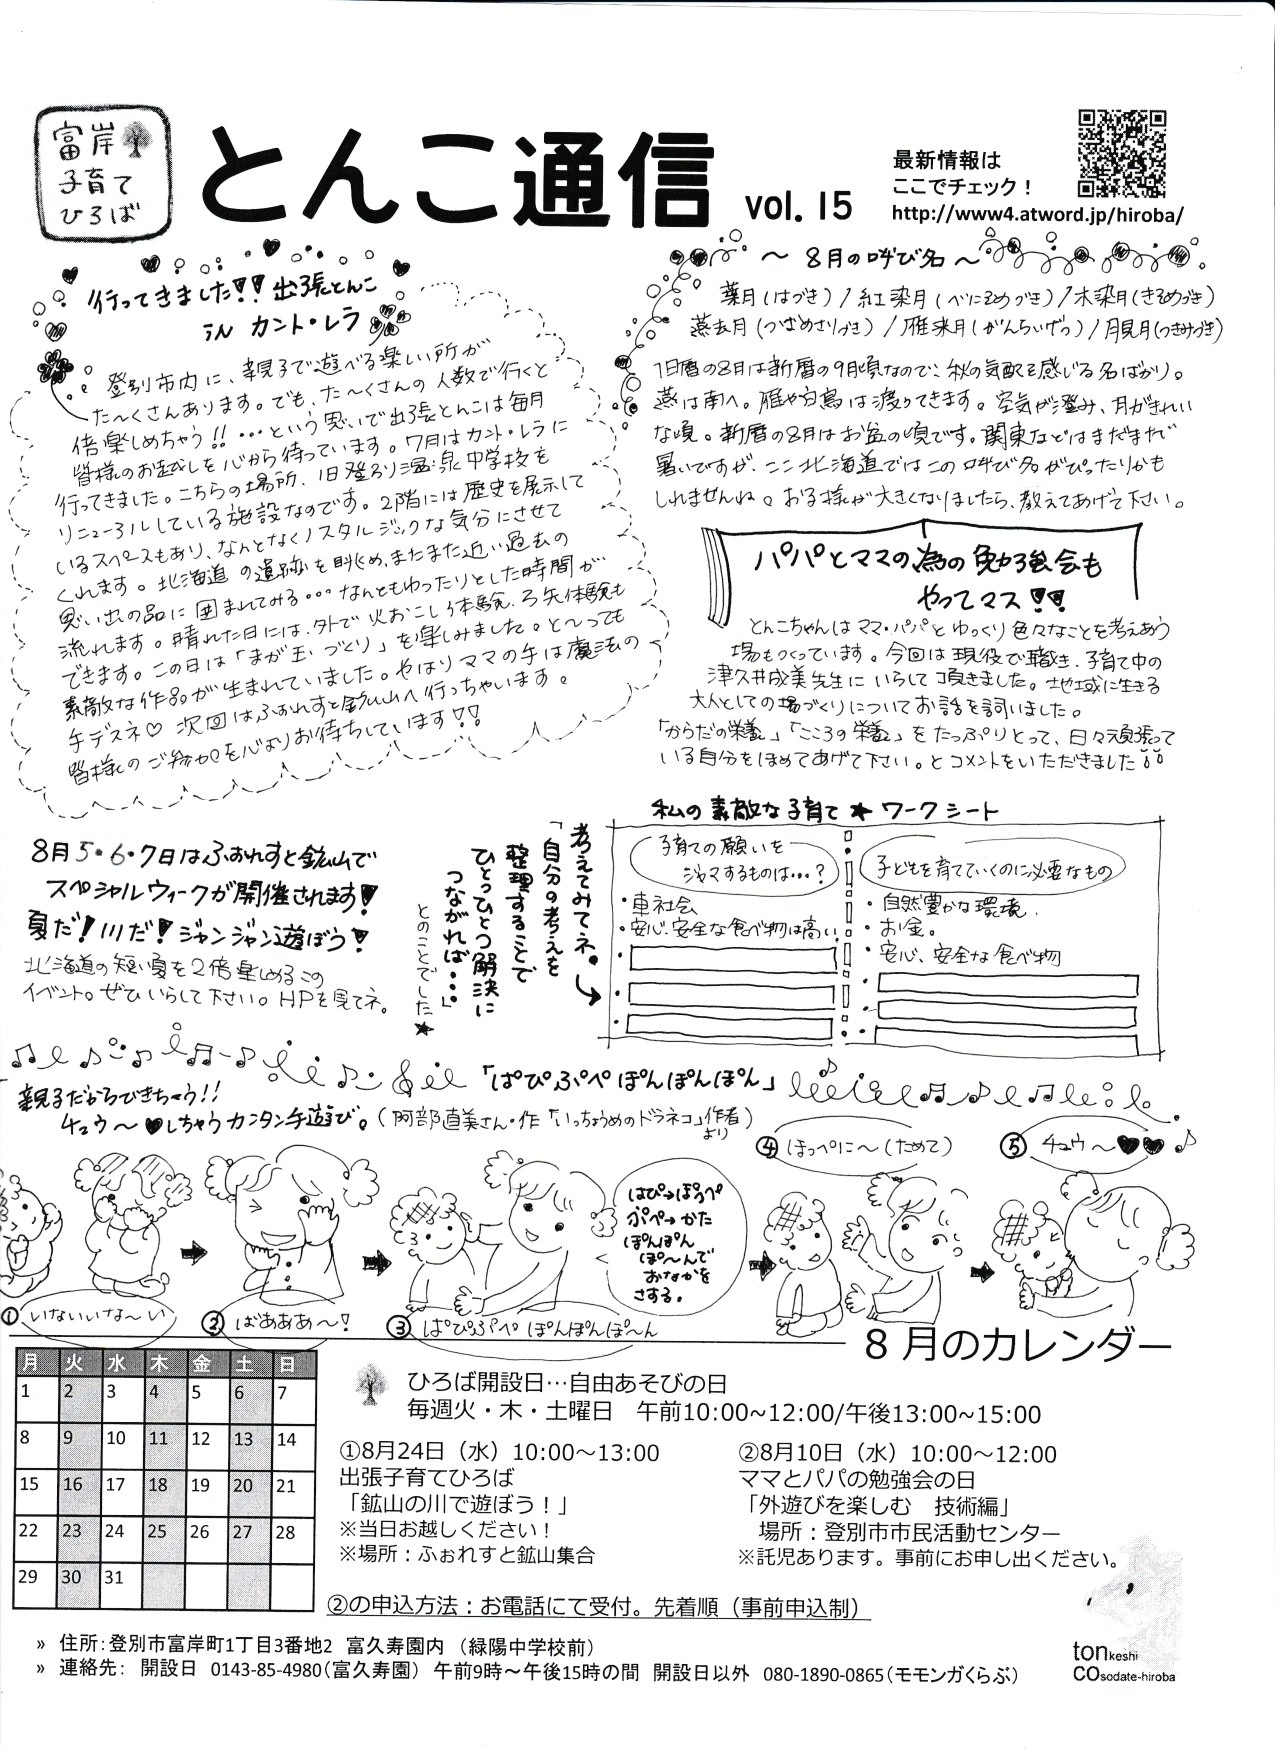 富岸
子育て
ひろば
とんこ通信 vol. 15
最新情報は
ここでチェック！
http://www4.atword.jp/hiroba/
行ってきました!! 出張とんこ
in カント・レラ
登別市内に、親子で遊べる楽しい所が
た～くさんあります。でも、た～くさんの人数で行くと
倍楽しめちゃう!! …という思いで出張とんこは毎月
皆様のお越しを心から待っています。7月はカント・レラに
行ってきました。こちらの場所、旧登別温泉中学校を
リニューアルしている施設なのです。2階には歴史を展示して
いるスペースもあり、なんとなくノスタルジックな気分にさせて
くれます。北海道の遺跡を眺め、またまた近い過去の
思い出の品に囲まれてみる…なんともゆったりとした時間が
流れます。晴れた日には、外で火おこし体験、弓矢体験も
できます。この日は「まが玉づくり」を楽しみました。と～っても
素敵な作品が生まれていました。やはりママの手は魔法の
手デスネ♡ 次回はふぉれすと鉱山へ行っちゃいます。
皆様のご参加を心よりお待ちしています!!
～ 8月の呼び名 ～
葉月(はづき) / 紅染月(べにそめづき) / 木染月(きぞめづき)
燕去月(つばめさりづき) / 雁来月(がんらいげつ) / 月見月(つきみづき)
旧暦の8月は新暦の9月頃なので、秋の気配を感じる名ばかり。
燕は南へ。雁や白鳥は渡ってきます。空気が澄み、月がきれい
な頃。新暦の8月はお盆の頃です。関東などはまだまだ
暑いですが、ここ北海道ではこの呼び名がぴったりかも
しれませんね。お子様が大きくなりましたら、教えてあげて下さい。
パパとママの為の勉強会も
やってマス!!
とんこちゃんはママ・パパとゆっくり色々なことを考えあう
場もつくっています。今回は現役で働き、子育て中の
津久井成美先生にいらして頂きました。地域に生きる
大人としての場づくりについてお話を伺いました。
「からだの栄養」「こころの栄養」をたっぷりとって、日々頑張って
いる自分をほめてあげて下さい。とコメントをいただきました!!
8月5・6・7日はふぉれすと鉱山で
スペシャルウィークが開催されます!
夏だ!川だ!ジャンジャン遊ぼう!
北海道の短い夏を2倍楽しめるこの
イベント。ぜひいらして下さい。HPを見てネ。
考えてみてネ。
「自分の考えを
整理することで
ひとつひとつ解決に
つながれば・・・」
とのことでした★
私の素敵な子育て★ワークシート
子育ての願いを
ジャマするものは…?
・車社会
・安心、安全な食べ物は高い
子どもを育てていくのに必要なもの
・自然豊かな環境
・お金。
・安心、安全な食べ物
「ぱぴぷぺ ぽんぽんぽん」
親子だからできちゃう!!
チュウ～♥しちゃうカンタン手遊び。(阿部直美さん・作「いっちょうめのドラネコ」作者より)
①いないいな～い
②ばあああ～!
③ぱぴぷぺ ぽんぽんぽ～ん
ぱぴ→ほっぺ
ぷぺ→かた
ぽんぽん
ぽ～んで
おなかを
さする。
④ほっぺに～(ためて)
⑤チュウ～♥♥♪
8月のカレンダー
月 火 水 木 金 土 日
1 2 3 4 5 6 7
8 9 10 11 12 13 14
15 16 17 18 19 20 21
22 23 24 25 26 27 28
29 30 31
ひろば開設日…自由あそびの日
毎週火・木・土曜日　午前10:00~12:00/午後13:00~15:00
①8月24日（水）10:00～13:00
出張子育てひろば
「鉱山の川で遊ぼう！」
※当日お越しください！
※場所：ふぉれすと鉱山集合
②8月10日（水）10:00～12:00
ママとパパの勉強会の日
「外遊びを楽しむ　技術編」
場所：登別市市民活動センター
※託児あります。事前にお申し出ください。
②の申込方法：お電話にて受付。先着順（事前申込制）
» 住所：登別市富岸町1丁目3番地2 富久寿園内 （緑陽中学校前）
» 連絡先： 開設日 0143-85-4980（富久寿園） 午前9時～午後15時の間 開設日以外 080-1890-0865（モモンガくらぶ）
tonkeshi
COsodate-hiroba